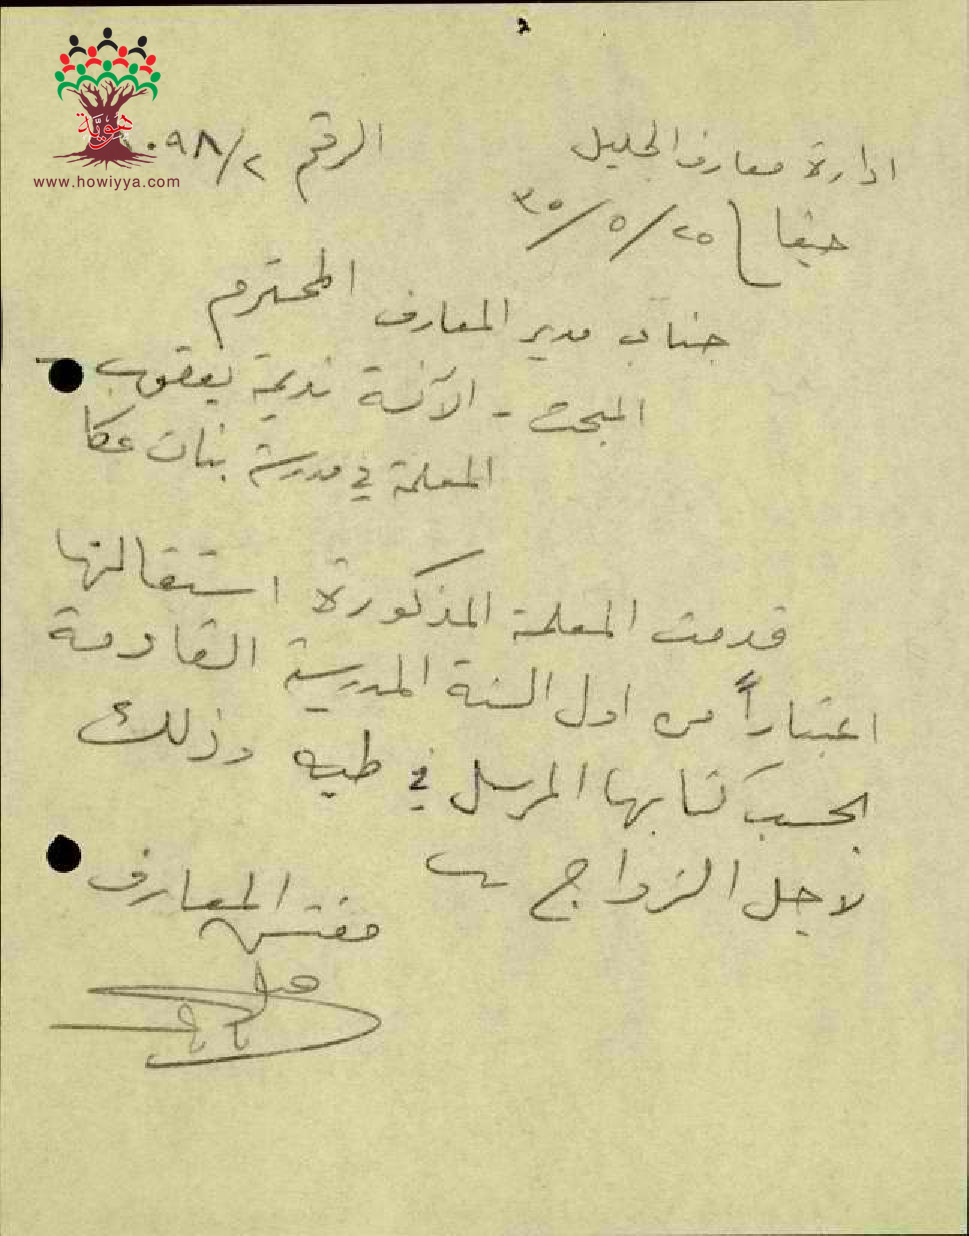 ادارة معارف الجليل
الرقم ٢/٠٩٨
حيفا ٢٥/٥/٣٥
جناب مدير المعارف المحترم
المبحث - الآنسة نديمة يعقوب
المعلمة في مدرسة بنات عكا
قدمت المعلمة المذكورة استقالتها
اعتباراً من اول السنة المدرسية القادمة
بحسب كتابها المرسل في طيه وذلك
لاجل الزواج
مفتش المعارف
هوية
www.howiyya.com